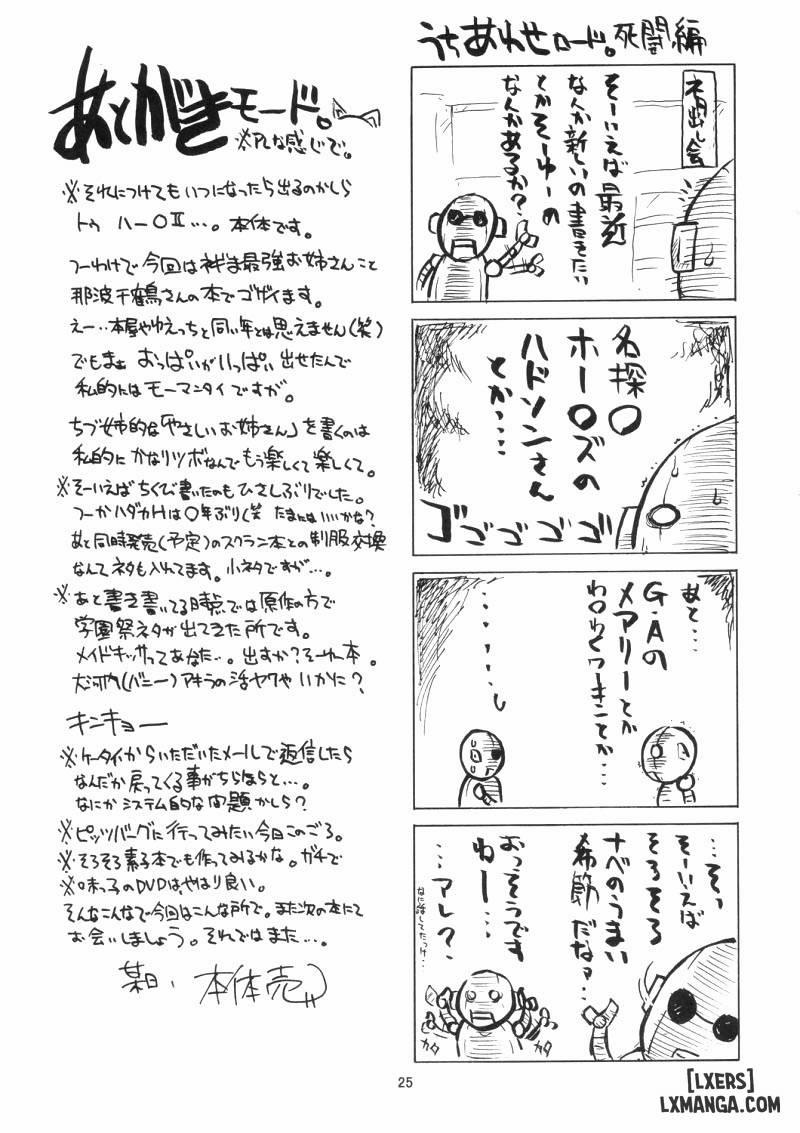 あとがきモード。
※PLな感じで。
※それにつけてもいつになったら出るのかしら
トゥ ハー〇Ⅱ…。本体です。
つーわけで今回はネギま最強お姉さんこと
那波千鶴さんの本でゴザイます。
えー‥本屋やゆえっちと同い年とは思えません(笑)
でもまぁ おっぱいがいっぱい出せたんで
私的にはモーマンタイですが。
ちづ姉的な「やさしいお姉さん」を書くのは
私的にかなりツボなんでもう楽しくて楽しくて。
※そーいえばちくび書いたのもひさしぶりでした。
つーかハダカHは〇年ぶり(笑 たまにはいいかな?
あと同時発売(予定)のスクラン本との制服交換
なんてネタも入れてます。小ネタですが…。
※あと書き書いてる時点では原作の方で
学園祭ネタが出てきた所です。
メイドキッサってあなた…。出すか?そーゆー本。
大河内(バニー)アキラの活ヤクやいかに?
キンキョー
※ケータイからいただいたメールで返信したら
なんだか戻ってくる事がちらほらと…。
なにかシステム的な問題かしら?
※ピッツバーグに行ってみたい今日このごろ。
※そろそろ素子本でも作ってみるかな。ガチで
※味っ子のDVDはやはり良い。
そんなこんなで今回はこんな所で。また次の本にて
お会いしましょう。それではまた…。
某日、本体売
うちあわせロード。死闘編
ネタ出し会
そーいえば最近
なんか新しいの書きたい
とかそーゆーの
なんかあるか?
名探〇
ホー〇ズの
ハドソンさん
とか‥‥
ゴゴゴゴゴ
あと…
G・Aの
メアリーとか
わ〇わくワーキンとか…
…そっ
そーいえば
そろそろ
ナベのうまい
季節だなァ…
おっそうです
ねー…
…アレ?
なに話してたっけ…
カタ
カタ
25
[LXERS]
LXMANGA.COM